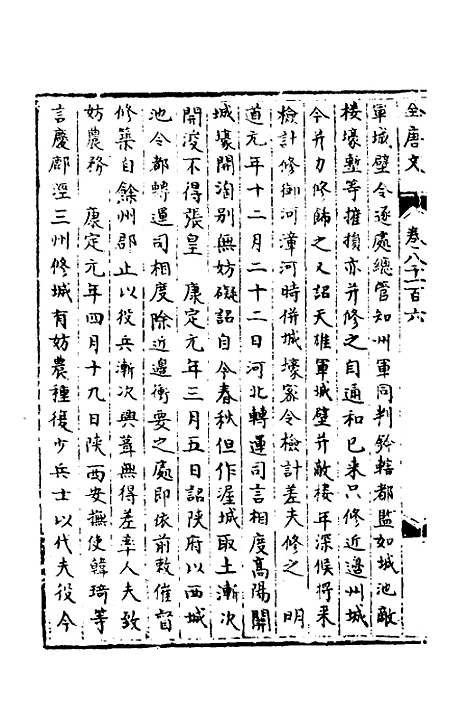 全唐文 卷八千一百六
軍城壁令逐處總管知州軍同判鈐轄都監如城池敵
棱壕塹等摧損亦并修之自通和已來只修近邊州城
今并力修飾之又詔天雄軍城壁并敵棱年深候將來
檢計修御河漳河時併城壕寨令檢計差夫修之 明
道元年十二月二十二日河北轉運司言相度高陽關
城壕開淘別無妨礙詔自今春秋但作渥城取土漸次
開浚不得張皇 康定元年三月五日詔陝府以西城
池令都轉運司相度除近邊衝要之處即依前敕催督
修築自餘州郡止以役兵漸次興葺無得差率人夫致
妨農務 康定元年四月十九日陝西安撫使韓琦等
言慶鄜涇三州修城有妨農種後少兵士以代夫役今